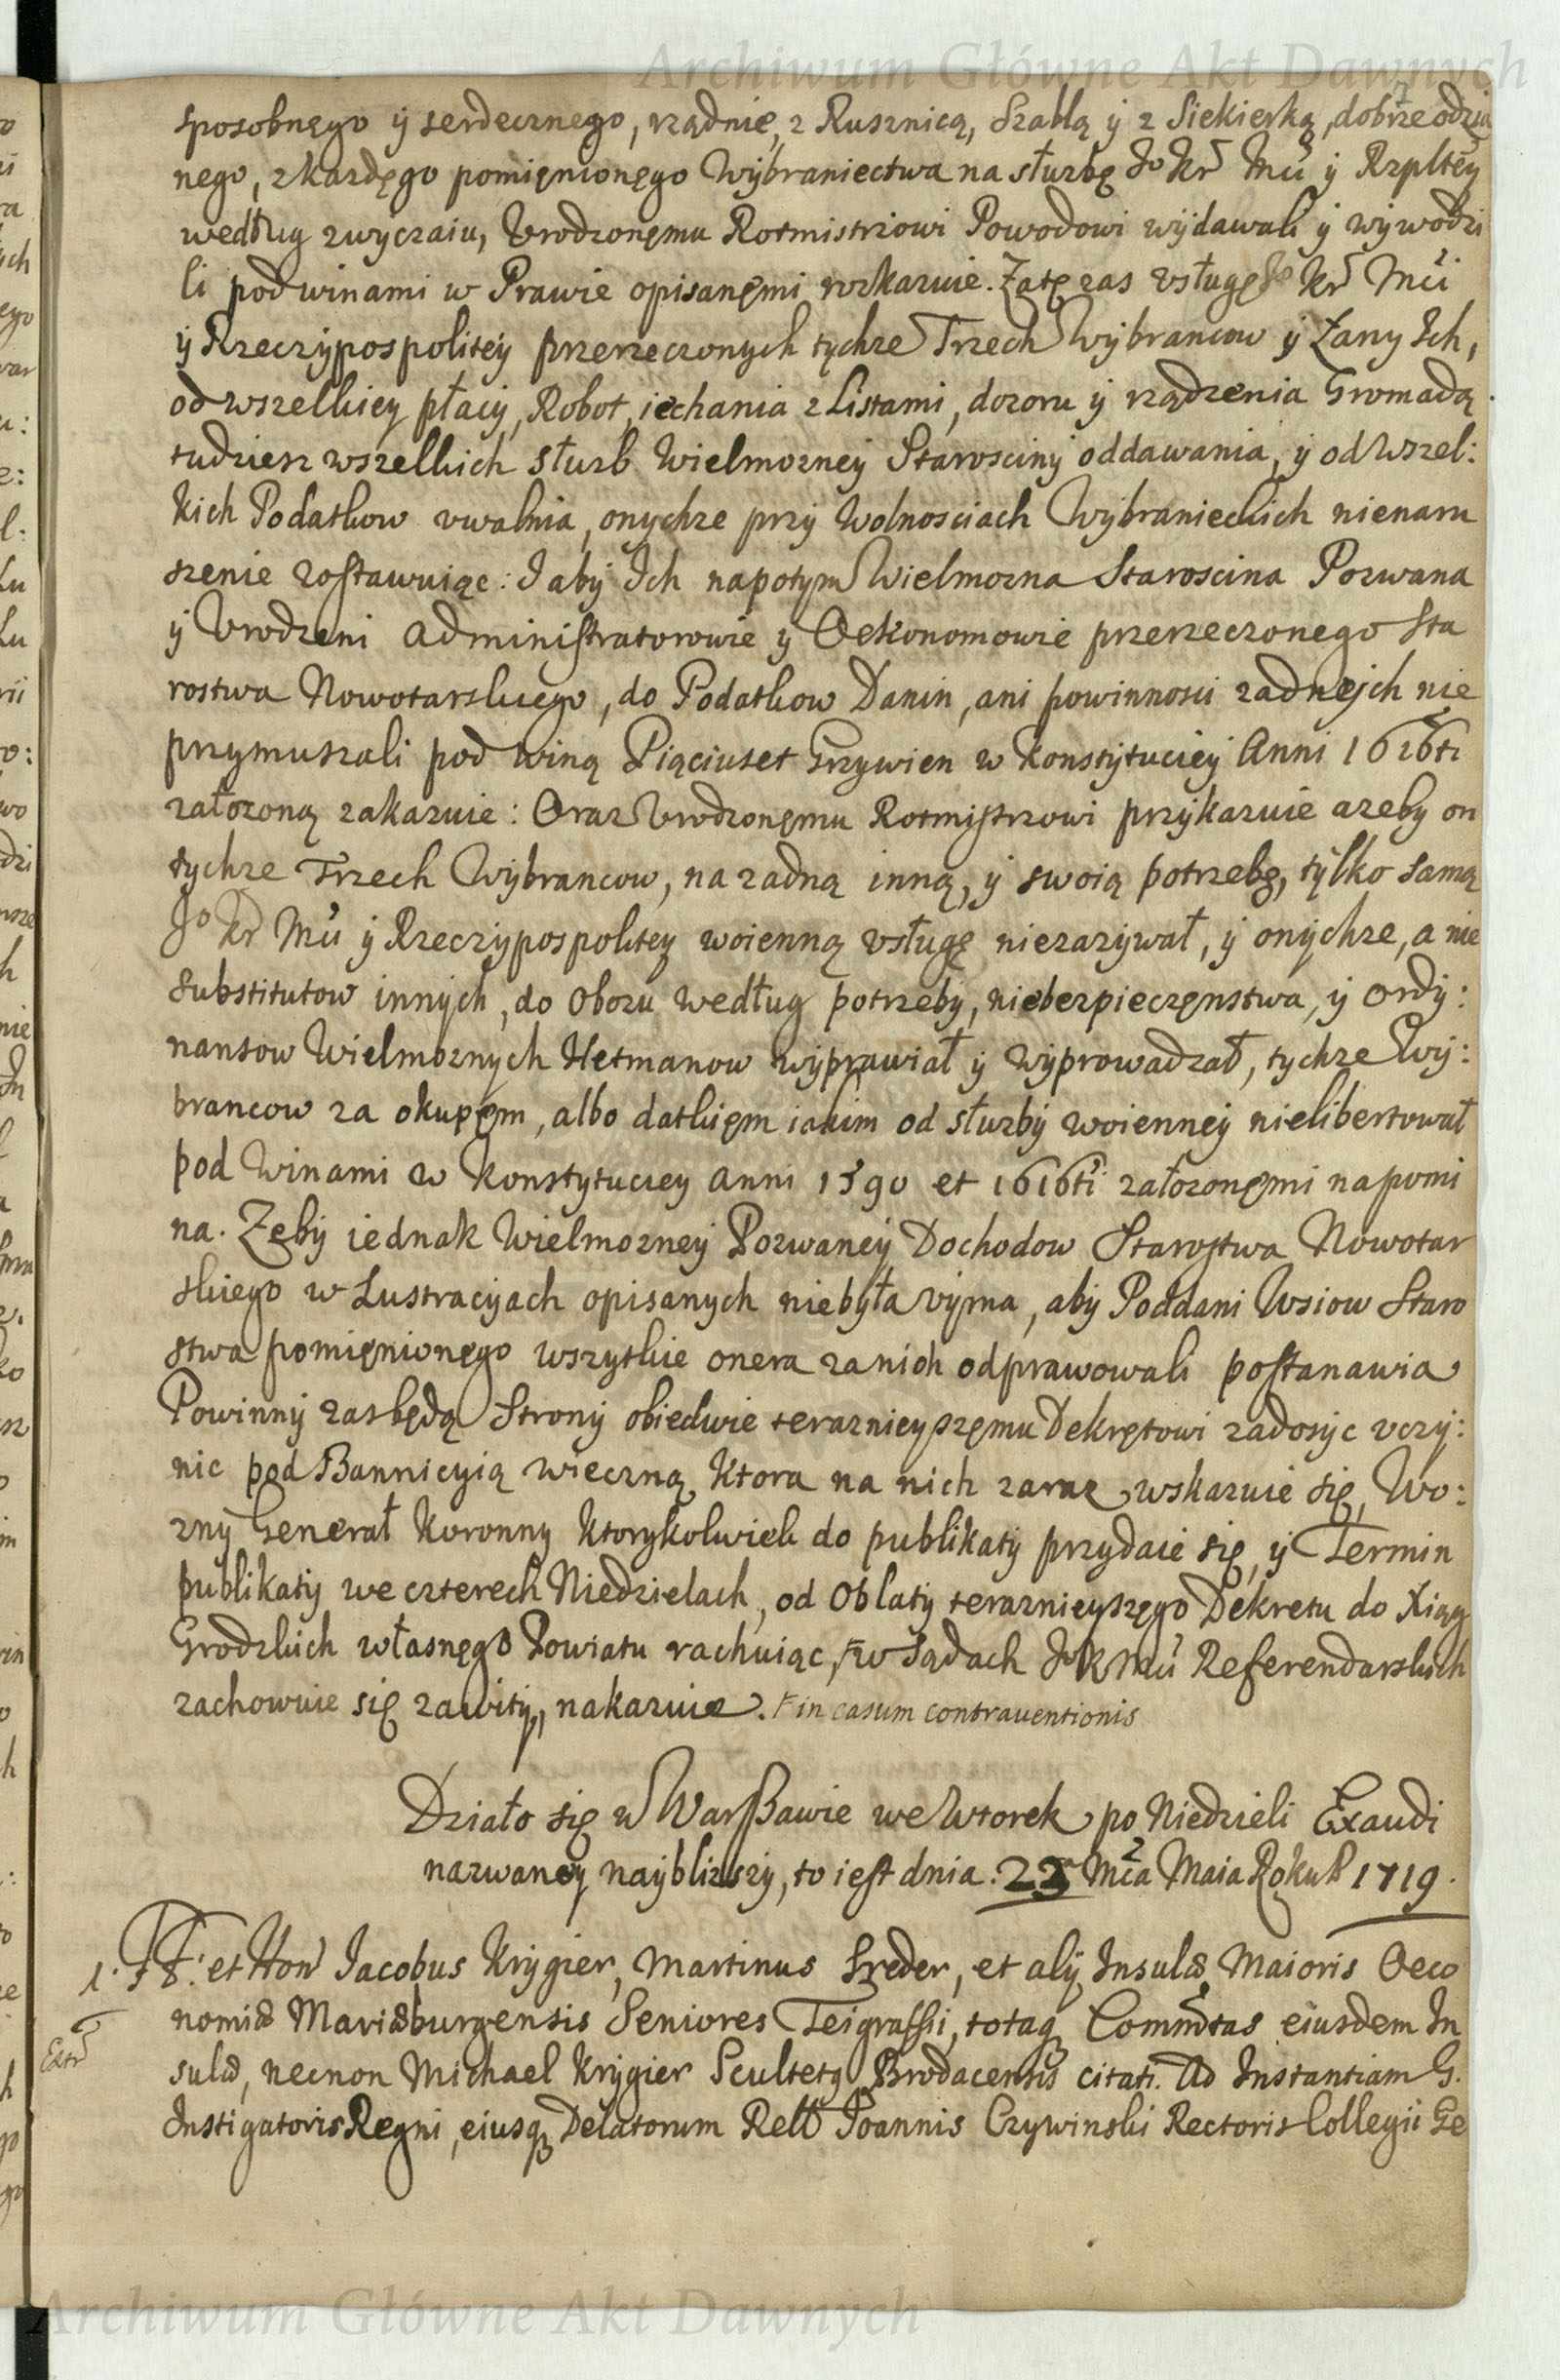 Archiwum Główne Akt Dawnych
sposobnęgo ÿ serdecznego, rządnię, z Rusznicą, Szablą ÿ z Siekierką, dobrze odzia
nego, z Kazdęgo pomięnionęgo Wÿbraniectwa na słuzbę Jo Kr Mci ÿ Rzpltey
według zwyczaiu, Vrodzonęmu Rotmistrzowi Powodowi wÿdawali ÿ wÿwodzi
li pod winami w Prawie opisanęmi rozkazuie. Zatę zas vsługę Jo Kr Mci
ÿ Rzeczÿpospolitey przerzeczonych tychze Trzech Wÿbrancow ÿ Łany Ich,
od wszelkiey płacÿ, Robot, iechania z Listami, dozoru ÿ rządzenia Gromadą
tudziesz wszelkich słuzb Wielmozneÿ Starosciny oddawania, ÿ od Wszel:
kich Podatkow vwalnia, onychze przÿ Wolnosciach Wÿbranieckich nienaru
szenie zostawuiąc: I abÿ Ich napotym Wielmozna Staroscina Pozwana
ÿ Vrodzeni Administratorowie ÿ Oekonomowie przerzeczonego Sta
rostwa Nowotarskiego, do Podatkow Danin, ani powinnosci zadnych nie
przymuszali pod winą Piąciuset Grzywien w Konstÿtucieÿ Anni 1616ti
załozoną zakazuie: Oraz Vrodzonęmu Rotmistrzowi przÿkazuie azeby on
tychze Trzech Wÿbrancow, na zadną inną, ÿ swoią potrzebę, tÿlko samą
Jo Kr Mci ÿ Rzeczÿpospolitey woienną vsługę niezazÿwał, ÿ onÿchze, a nie
substitutow innÿch, do Obozu według potrzebÿ, niebezpieczęnstwa, ÿ Ordÿ:
nansow Wielmoznych Hetmanow wÿprawiał ÿ wÿprowadzał, tychze Wÿ:
brancow za okupęm, albo datkięm iakim od słuzbÿ woienneÿ nielibertował
pod Winami w Konstytucieÿ anni 1590 et 1616ti załozonęmi napomi
na. Zebÿ iednak Wielmozneÿ Pozwaneÿ Dochodow Starostwa Nowotar
skiego w Lustracÿach opisanych niebÿła vÿma, abÿ Poddani Wsiow Staro
stwa pomięnionęgo wszytkie onera za nich odprawowali postanawia
Powinnÿ zas będą Stronÿ obiedwie teraznieÿszęmu Dekrętowi zadosÿc vczÿ:
nic pod Bannicÿią wieczną, Ktora na nich zaraz wskazuie się, Wo:
znÿ Generał Koronny Ktorÿkolwiek do publikatÿ przydaie się, ÿ Termin
publikatÿ we czterech Niedzielach, od Oblatÿ teraznieÿszęgo Dekretu do Xiąg
Grodzkich własnęgo Powiatu rachuiąc, ꜔w Sądach Jo K Mci Referendarskich
zachowuie się zawitÿ, nakazuie. ꜔in casum contrauentionis
Działo się w Warszawie we Wtorek po Niedzieli Exaudi
nazwaneÿ naÿblizszÿ, to iest dnia. 23 Mca Maia Roku P. 1719.
1. FF: et Hon Jacobus Krÿgier, Martinus Szreder, et alÿ Insulæ Maioris Oeco
Extr
nomiæ Mariæburgensis Seniores Teigraffii, totaq Commtas eiusdem In
sulæ, necnon Michael Krÿgier Scultetq Brodacensis citati. Ad Instantiam G.
Instigatoris Regni, eiusq Delatorum Rell Joannis Czywinski Rectoris Collegii Ge
Archiwum Główne Akt Dawnych